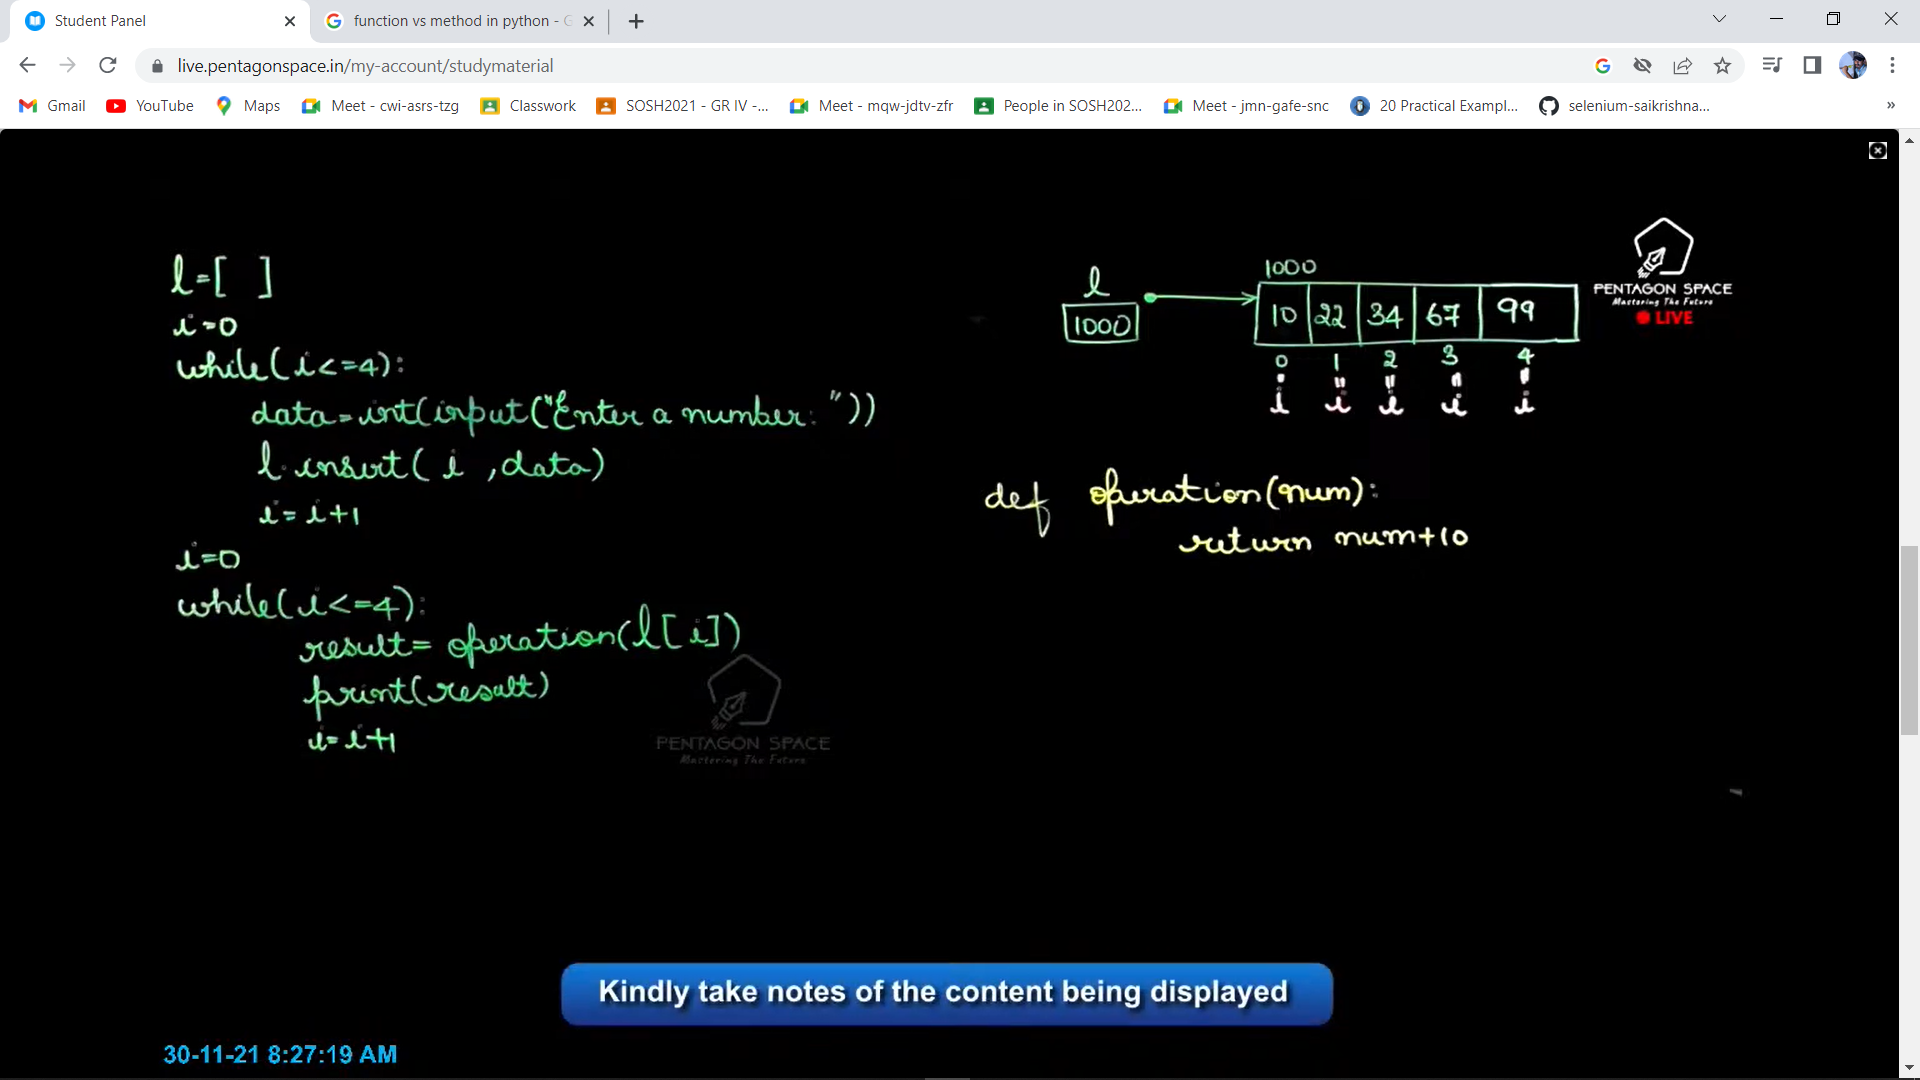 Student Panel
function vs method in python - G
live.pentagonspace.in/my-account/studymaterial
Gmail
YouTube
Maps
Meet - cwi-asrs-tzg
Classwork
SOSH2021 - GR IV -...
Meet - mqw-jdtv-zfr
People in SOSH202...
Meet - jmn-gafe-snc
20 Practical Exampl...
selenium-saikrishna...
»
l=[ ]
i=0
while(i<=4):
data=int(input("Enter a number: "))
l.insert( i ,data)
i=i+1
i=0
while(i<=4):
result= operation(l[i])
print(result)
i=i+1
PENTAGON SPACE
Mastering The Future
l
1000
1000
10 22 34 67 99
0 1 2 3 4
i i i i i
PENTAGON SPACE
Mastering The Future
LIVE
def operation(num):
return num+10
Kindly take notes of the content being displayed
30-11-21 8:27:19 AM